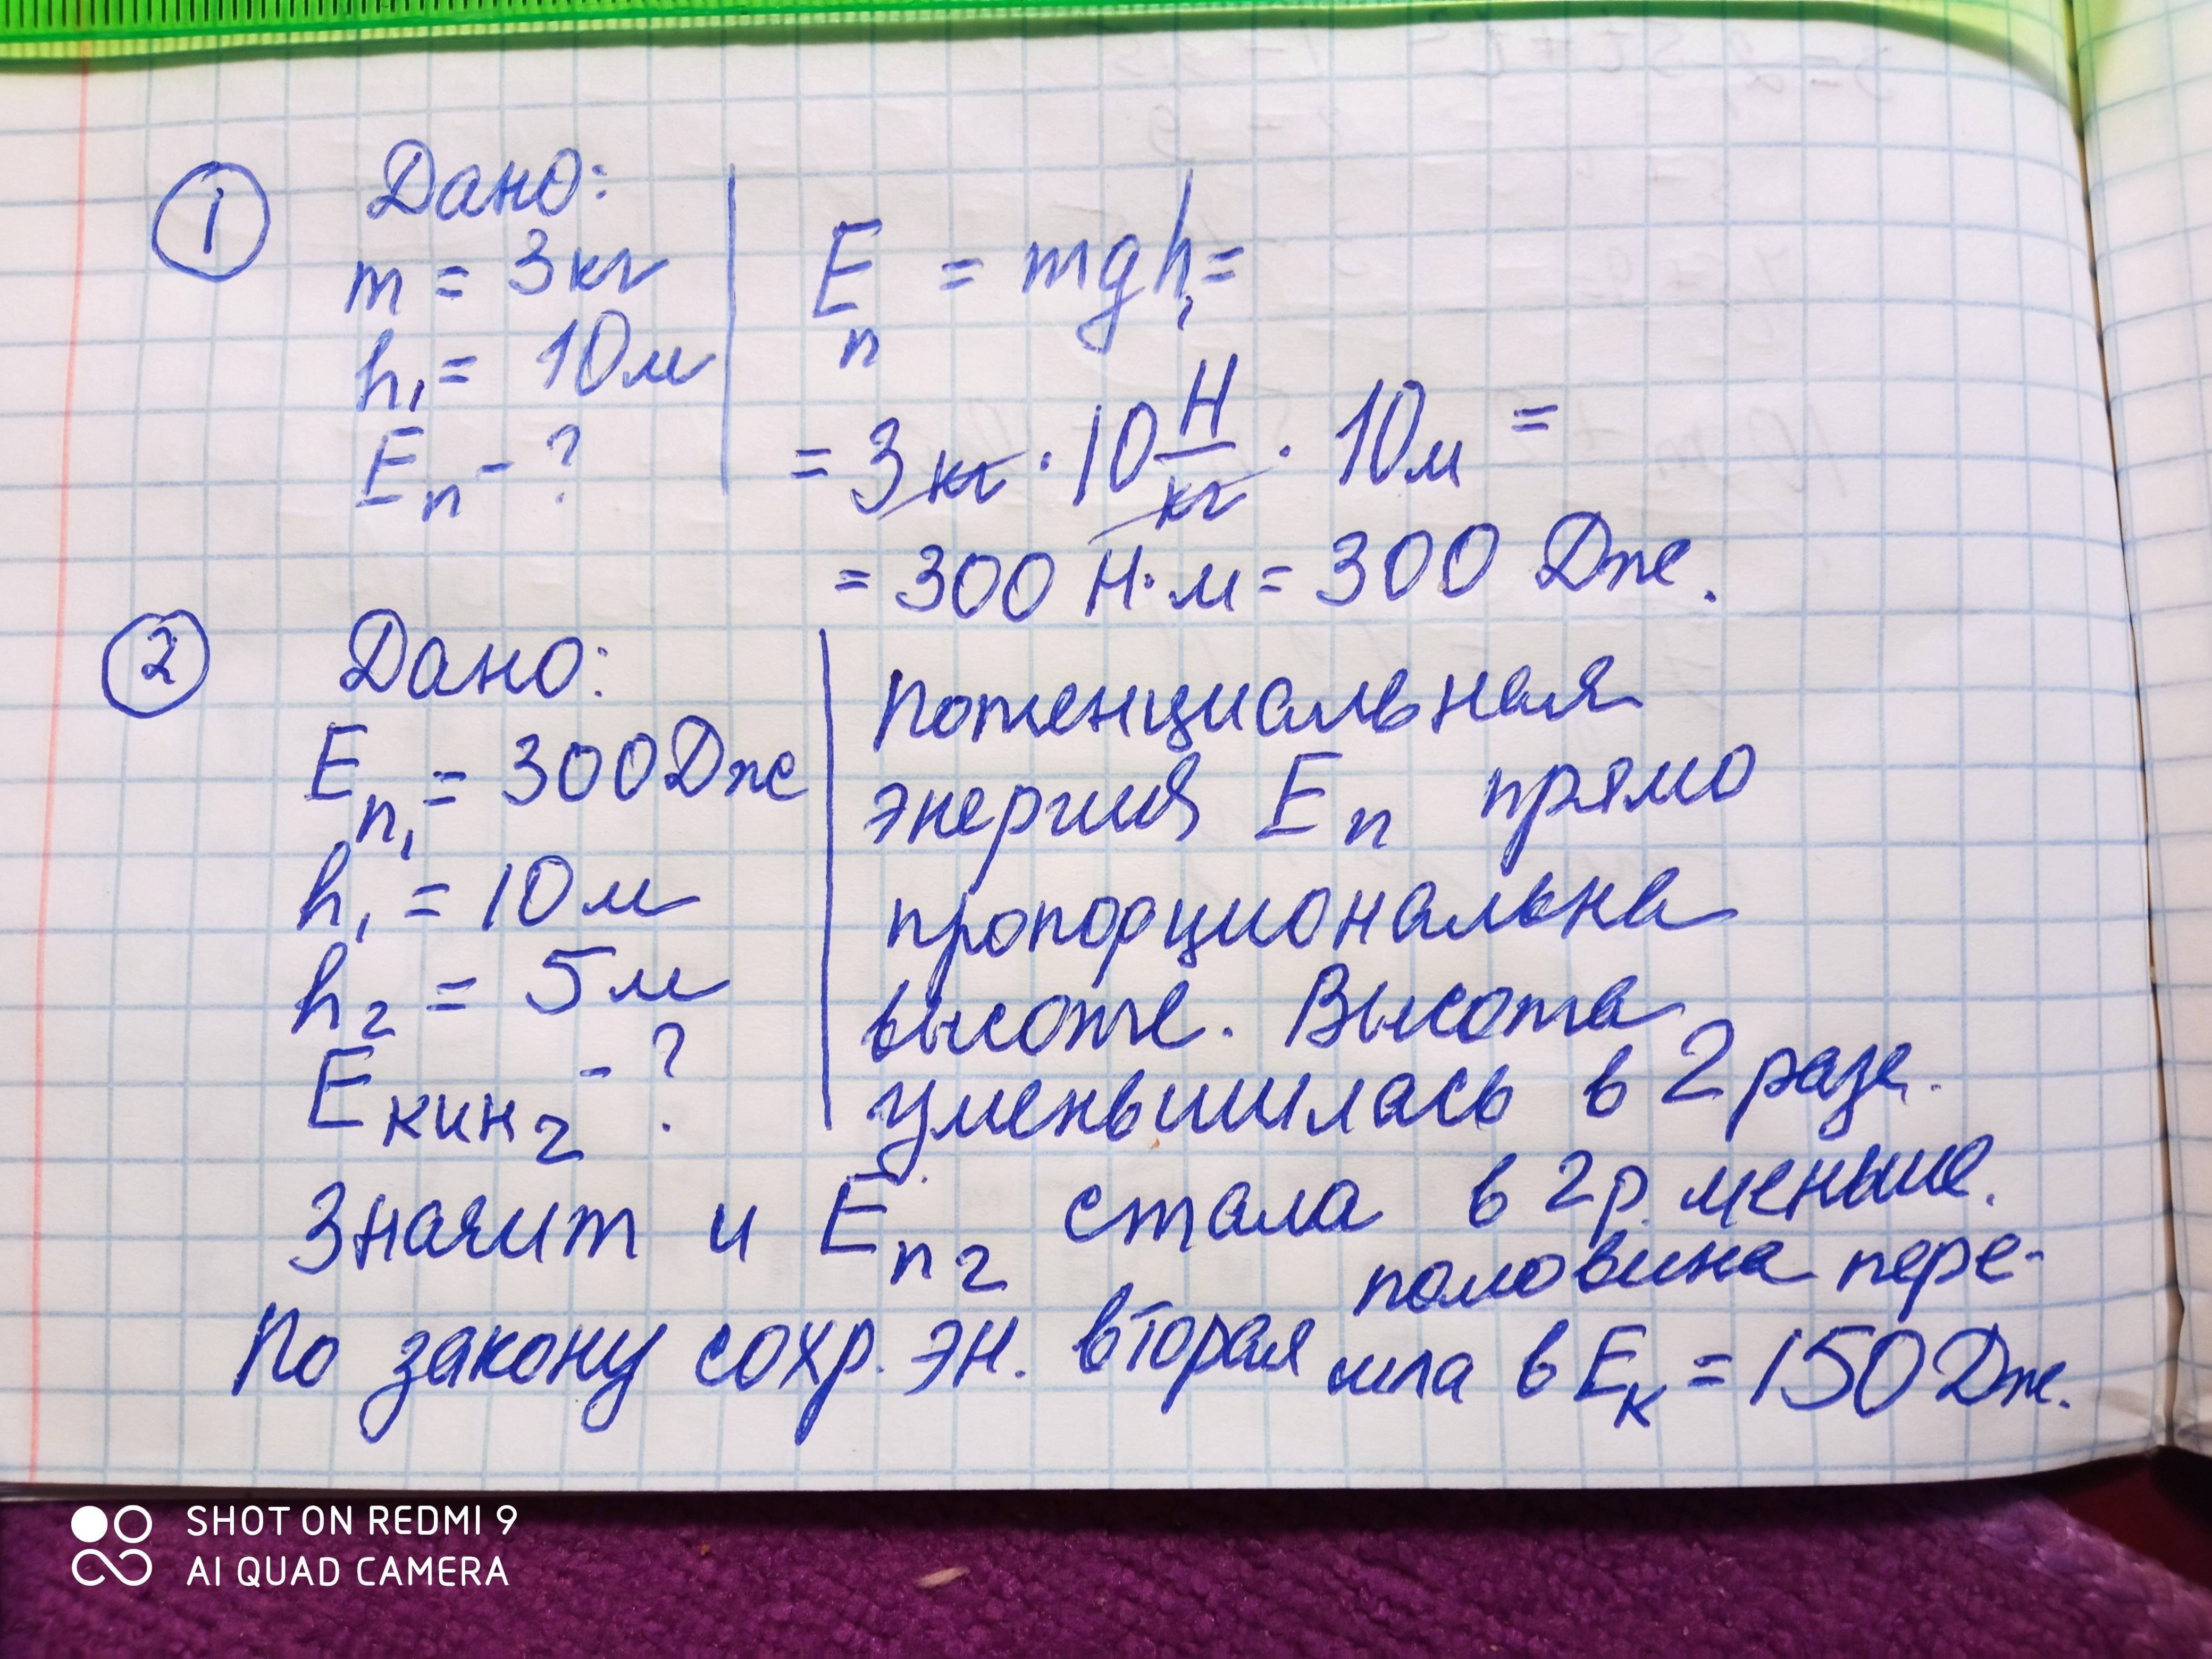 1 Дано:
m = 3кг
h₁ = 10м
Eп - ?
Eп = mgh₁ =
= 3кг · 10 Н/кг · 10м =
= 300 Н·м = 300 Дж.
2 Дано:
Eп₁ = 300Дж
h₁ = 10м
h₂ = 5м
Eкин₂ - ?
Потенциальная
энергия Eп прямо
пропорциональна
высоте. Высота
уменьшилась в 2 раза.
Значит и Eп₂ стала в 2р. меньше.
По закону сохр. эн. вторая половина пере-
шла в Eк = 150Дж.
SHOT ON REDMI 9
AI QUAD CAMERA